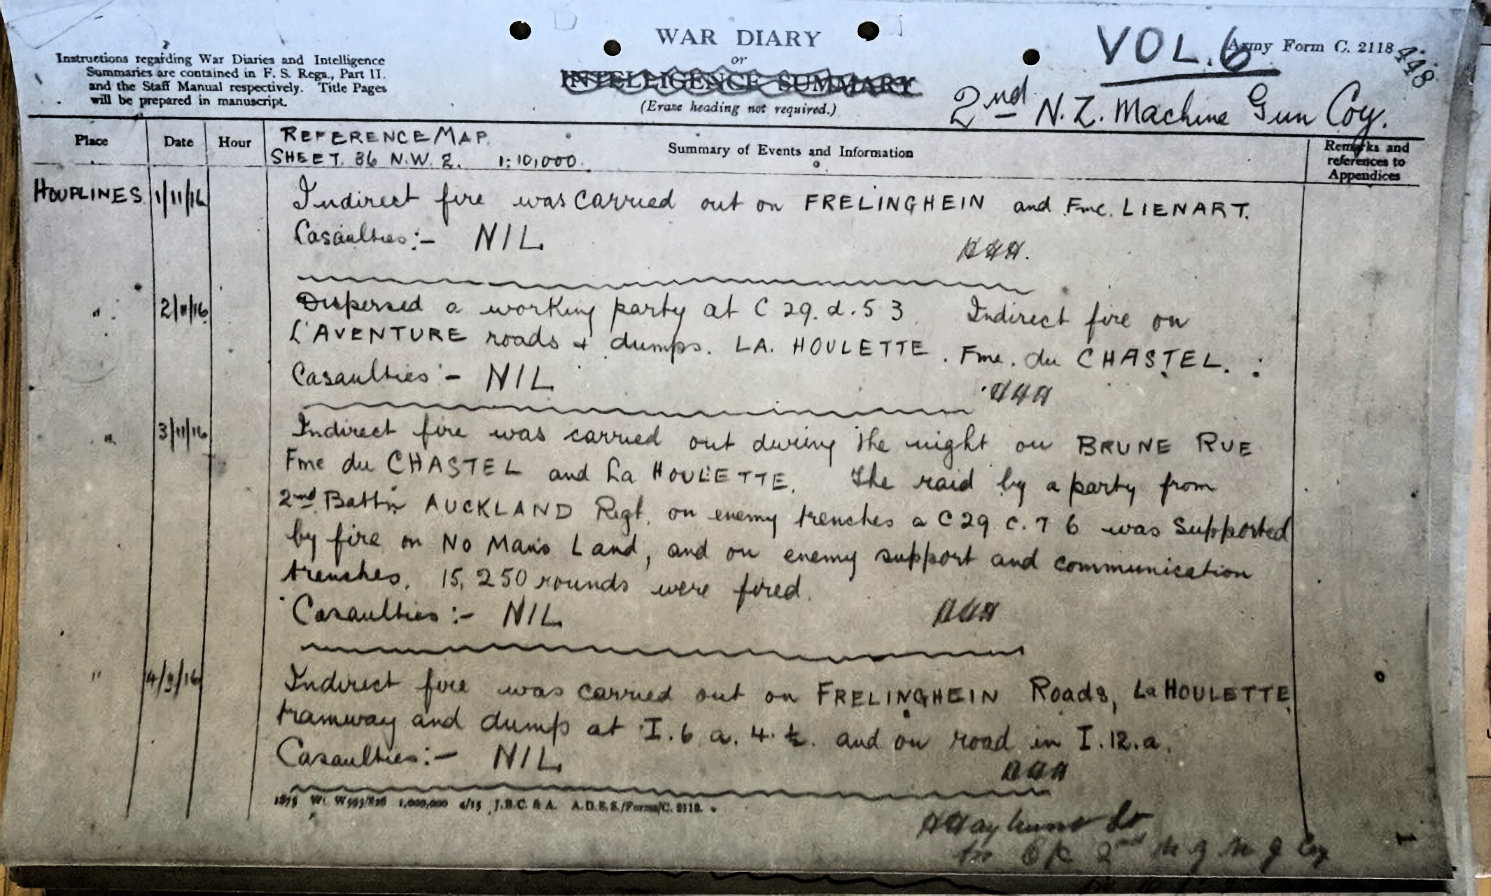 Instructions regarding War Diaries and Intelligence
Summaries are contained in F. S. Regs., Part II.
and the Staff Manual respectively. Title Pages
will be prepared in manuscript.
WAR DIARY
or
INTELLIGENCE SUMMARY
(Erase heading not required.)
VOL. 6
Army Form C. 2118
448
2nd N.Z. Machine Gun Coy.
Place Date Hour
REFERENCE MAP
SHEET. 36 N.W. 2. 1:10,000.
Summary of Events and Information
Remarks and
references to
Appendices
HOUPLINES 1/11/16 Indirect fire was carried out on FRELINGHEIN and Fme. LIENART.
Casaulties:- NIL
" 2/11/16 Dispersed a working party at C 29. d. 5 3. Indirect fire on
L'AVENTURE roads + dumps. LA. HOULETTE. Fme. du CHASTEL.
Casaulties - NIL
" 3/11/16 Indirect fire was carried out during the night on BRUNE RUE
Fme du CHASTEL and La HOULETTE. The raid by a party from
2nd Battn AUCKLAND Regt. on enemy trenches a C 29 c. 7 6 was supported
by fire on No Mans Land, and on enemy support and communication
trenches. 15,250 rounds were fired.
Casaulties:- NIL
" 4/11/16 Indirect fire was carried out on FRELINGHEIN Roads, La HOULETTE
tramway and dump at I. 6 a. 4. ½. and on road in I. 12. a.
Casaulties:- NIL
1875 Wt. W593/826 1,000,000 4/15 J.B.C. & A. A.D.S.S./Forms/C. 2118.
Lt
2nd N Z M G Coy
1